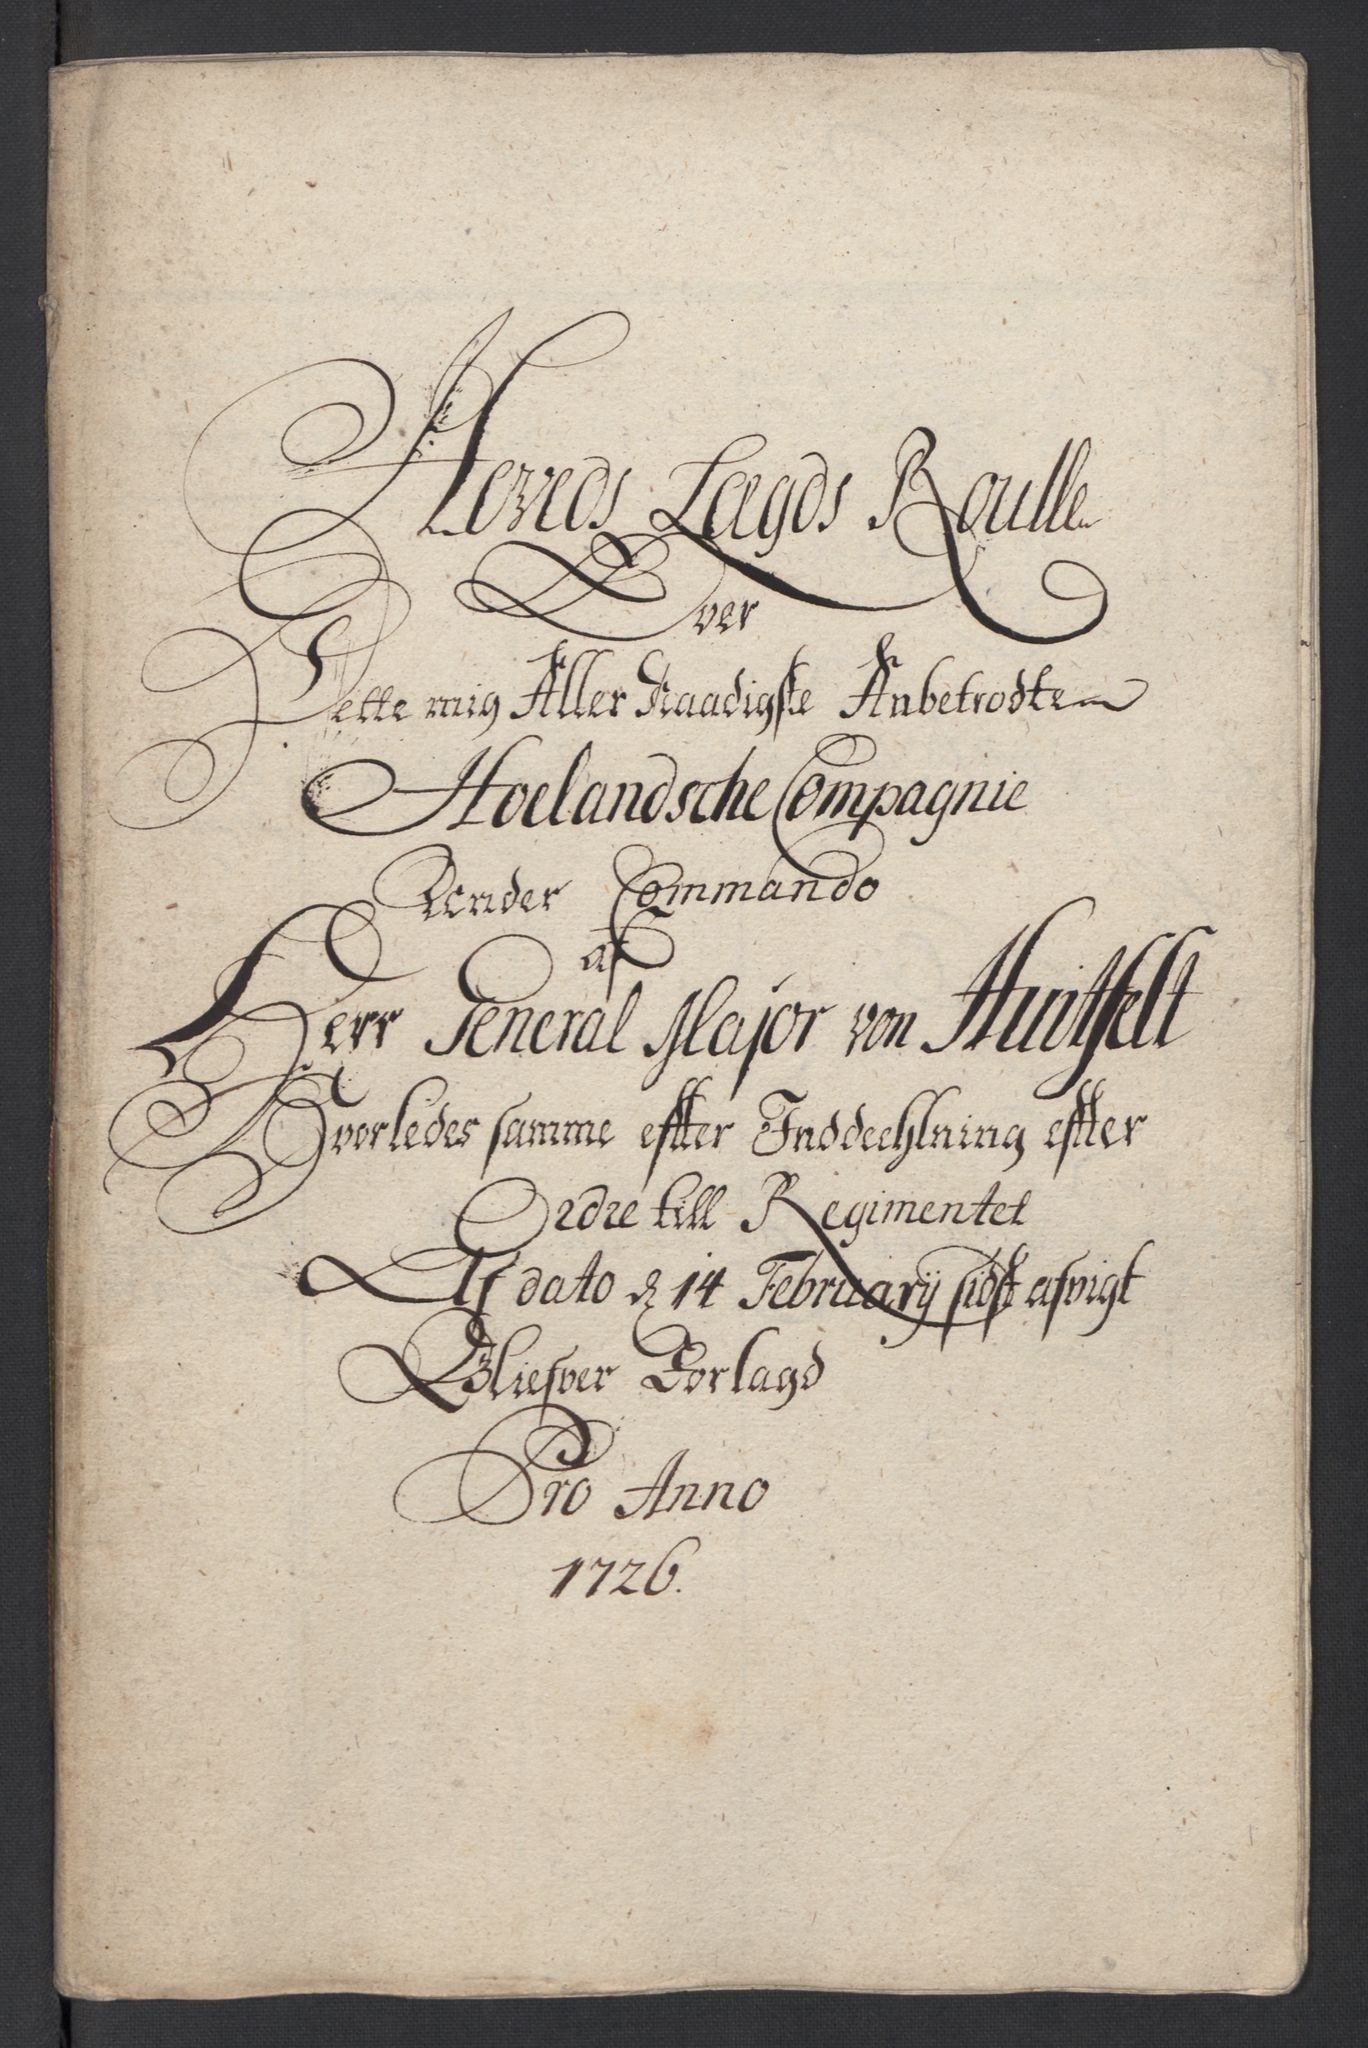 Hoveds Lægds Roulle
Over
Dette mig Aller Naadigste Anbetrodte
Hoelandsche Compagnie
Under Commando
af
Herr General Major von Huitfelt
Hvorledes samme effter Inddeehlning effter
Ordre till Regimentet
Af dato d 14 Februarij sidst afvigt
Bliefver Forlagd
Pro Anno
1726.